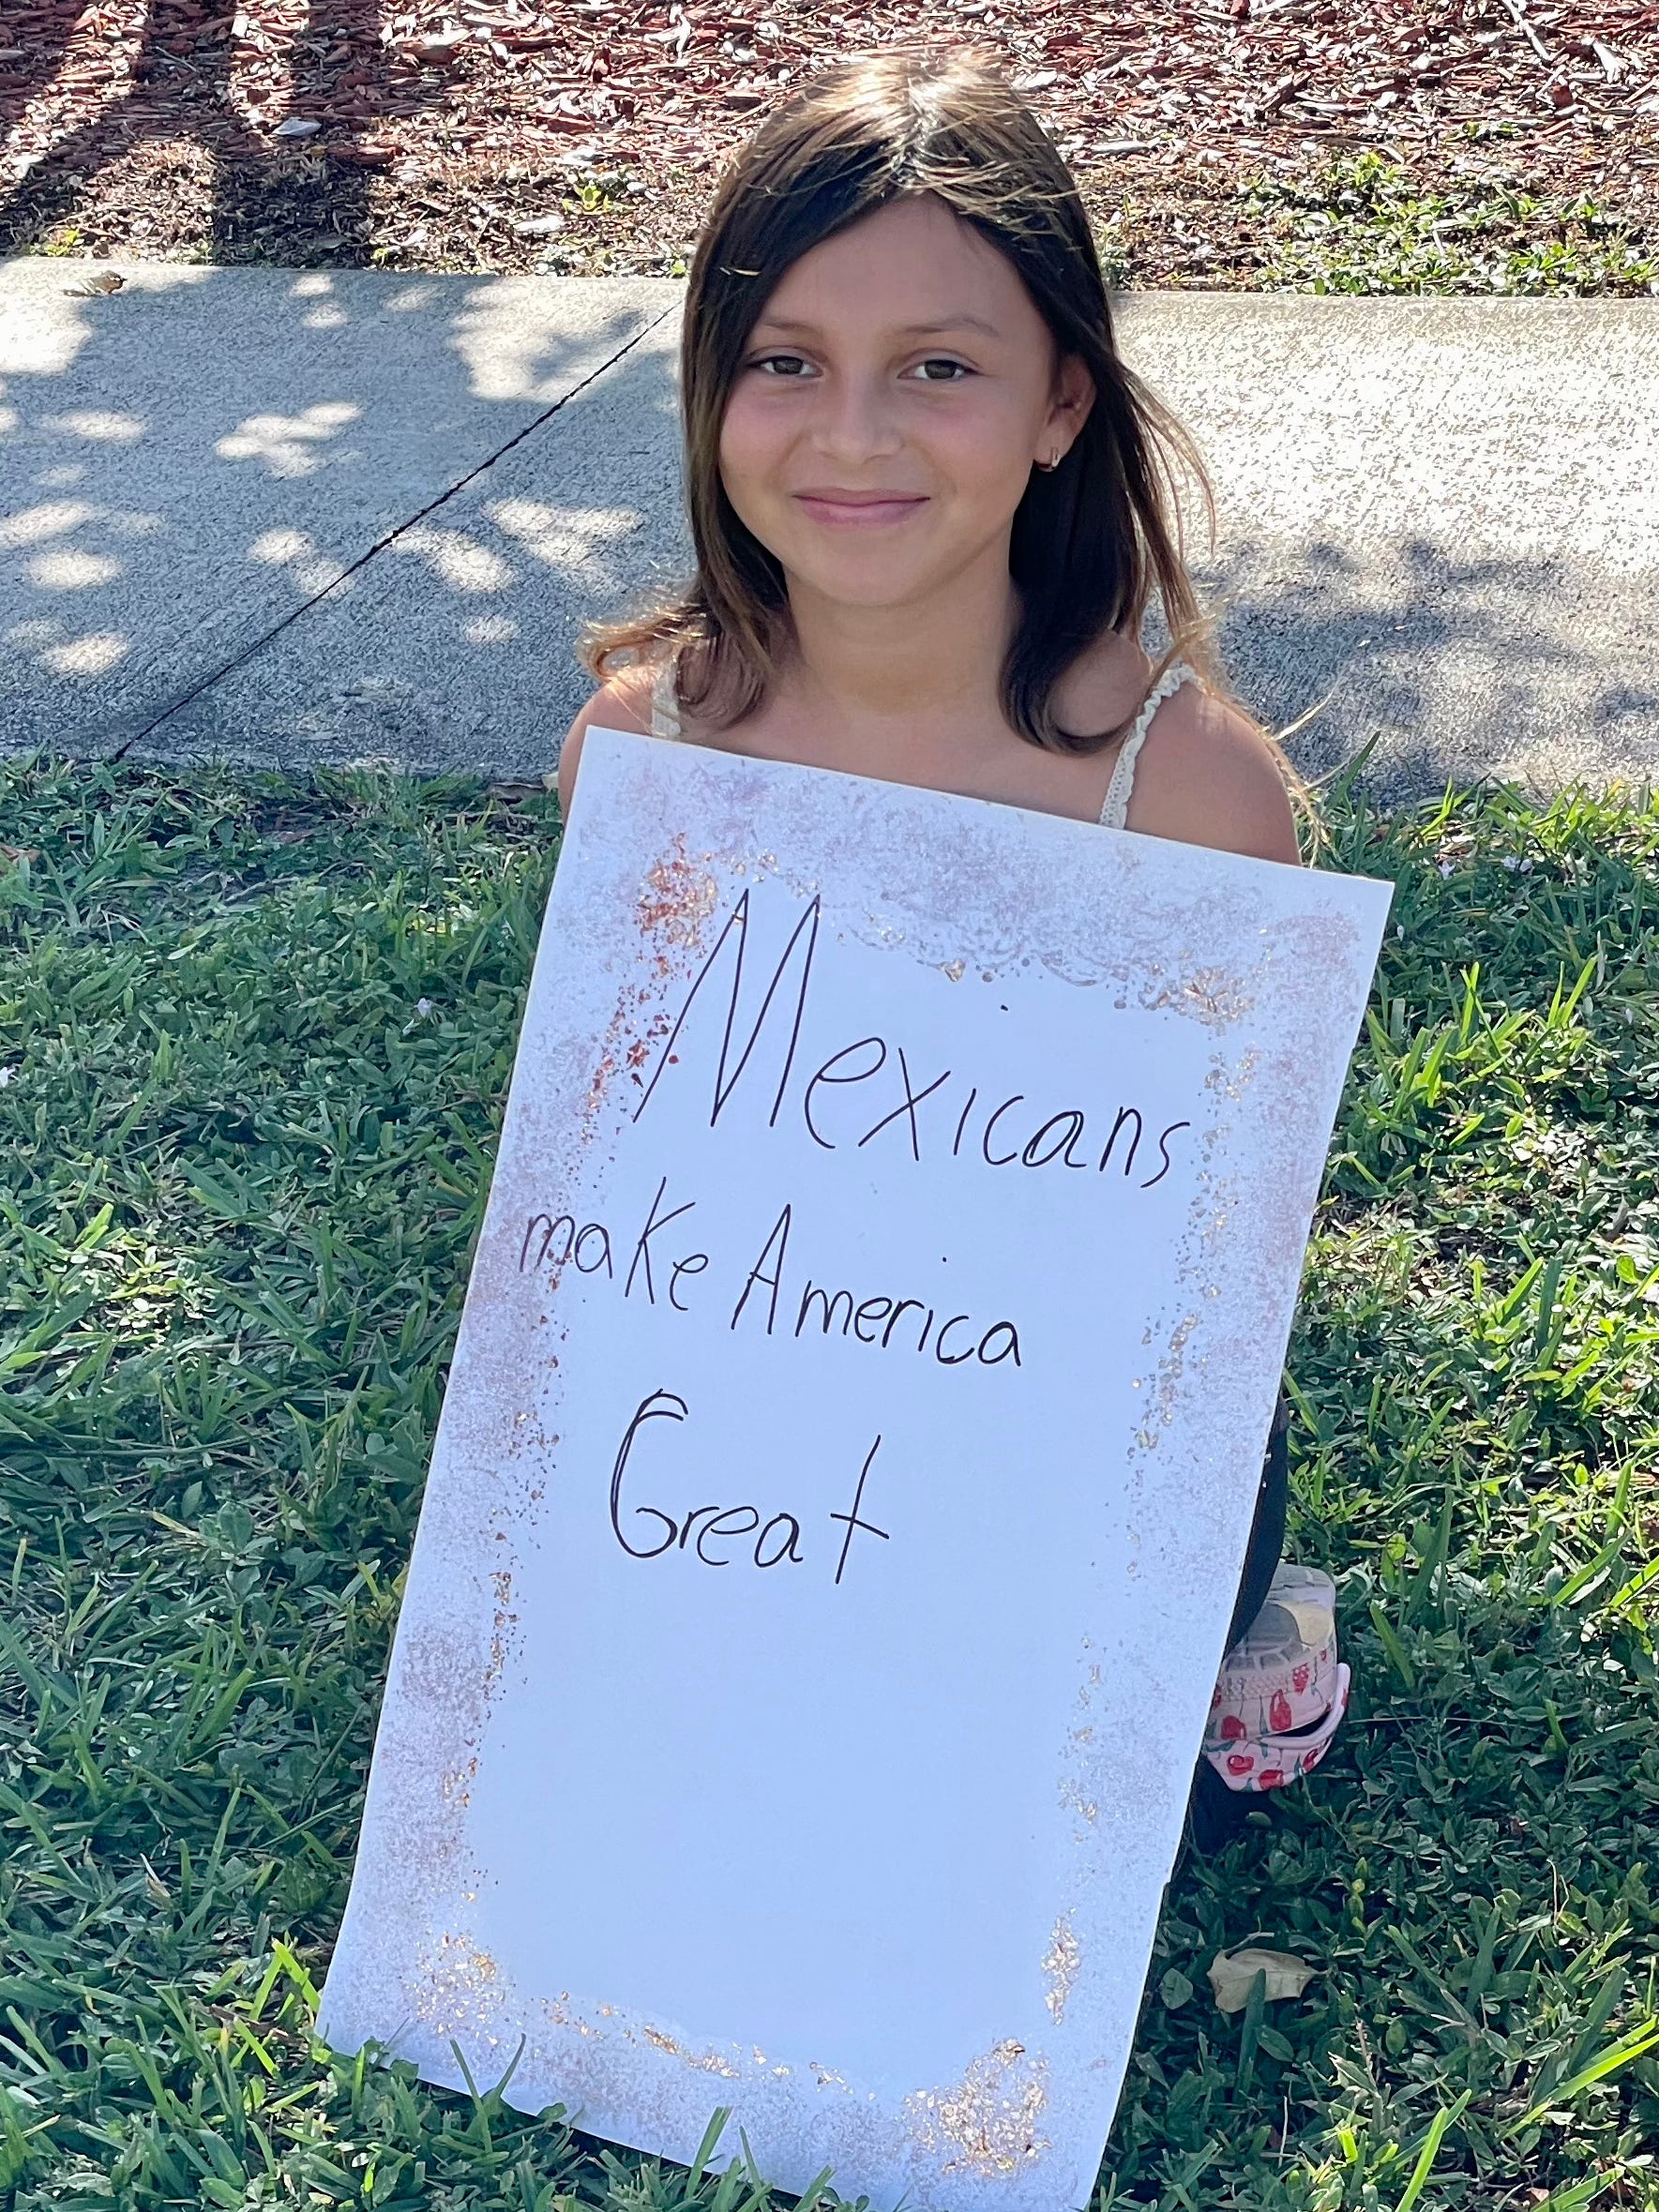 Mexicans
make America
Great